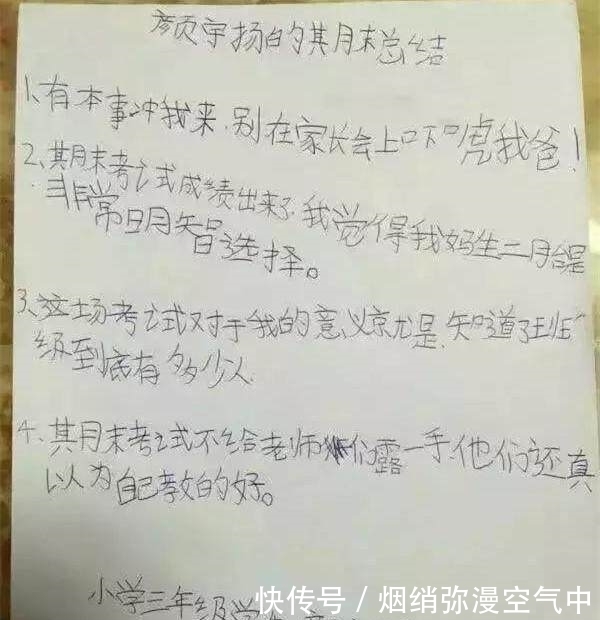 颜宇扬的期末总结
1、有本事冲我来,别在家长会上吓唬我爸!
2、期末考试成绩出来了,我觉得我妈生二胎是
非常明智选择。
3、这场考试对于我的意义就是,知道了班
级到底有多少人.
4、期末考试不给老师们露一手,他们还真
以为自己教的好。
小学三年级学生
快传号 / 烟绡弥漫空气中